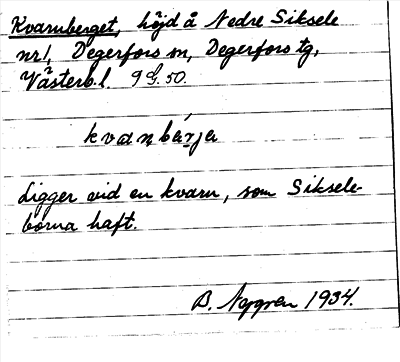 Kvarnberget, höjd å Nedre Siksele
nr 1, Degerfors sn, Degerfors tg,
Västerb. l. 9 G. 50.
kvanbärja
Ligger vid en kvarn, som Siksele-
borna haft.
B. Nygren 1934.